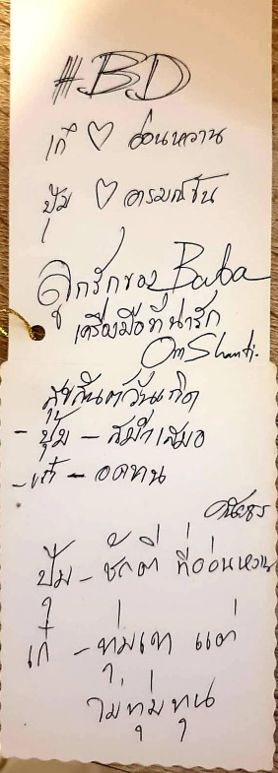 #BD
เก๋ ♡ อ่อนหวาน
ปุ้ม ♡ อารมณ์ขัน
ลูกรักของ Baba
เครื่องมือที่น่ารัก
Om Shanti.
สุขสันต์วันเกิด
- ปุ้ม - สม่ำเสมอ
- เก๋ - อดทน
ปุ้ม - ที่อ่อนหวาน
เก๋ - ทุ่มเท แต่
ไม่ทุ่มทุน